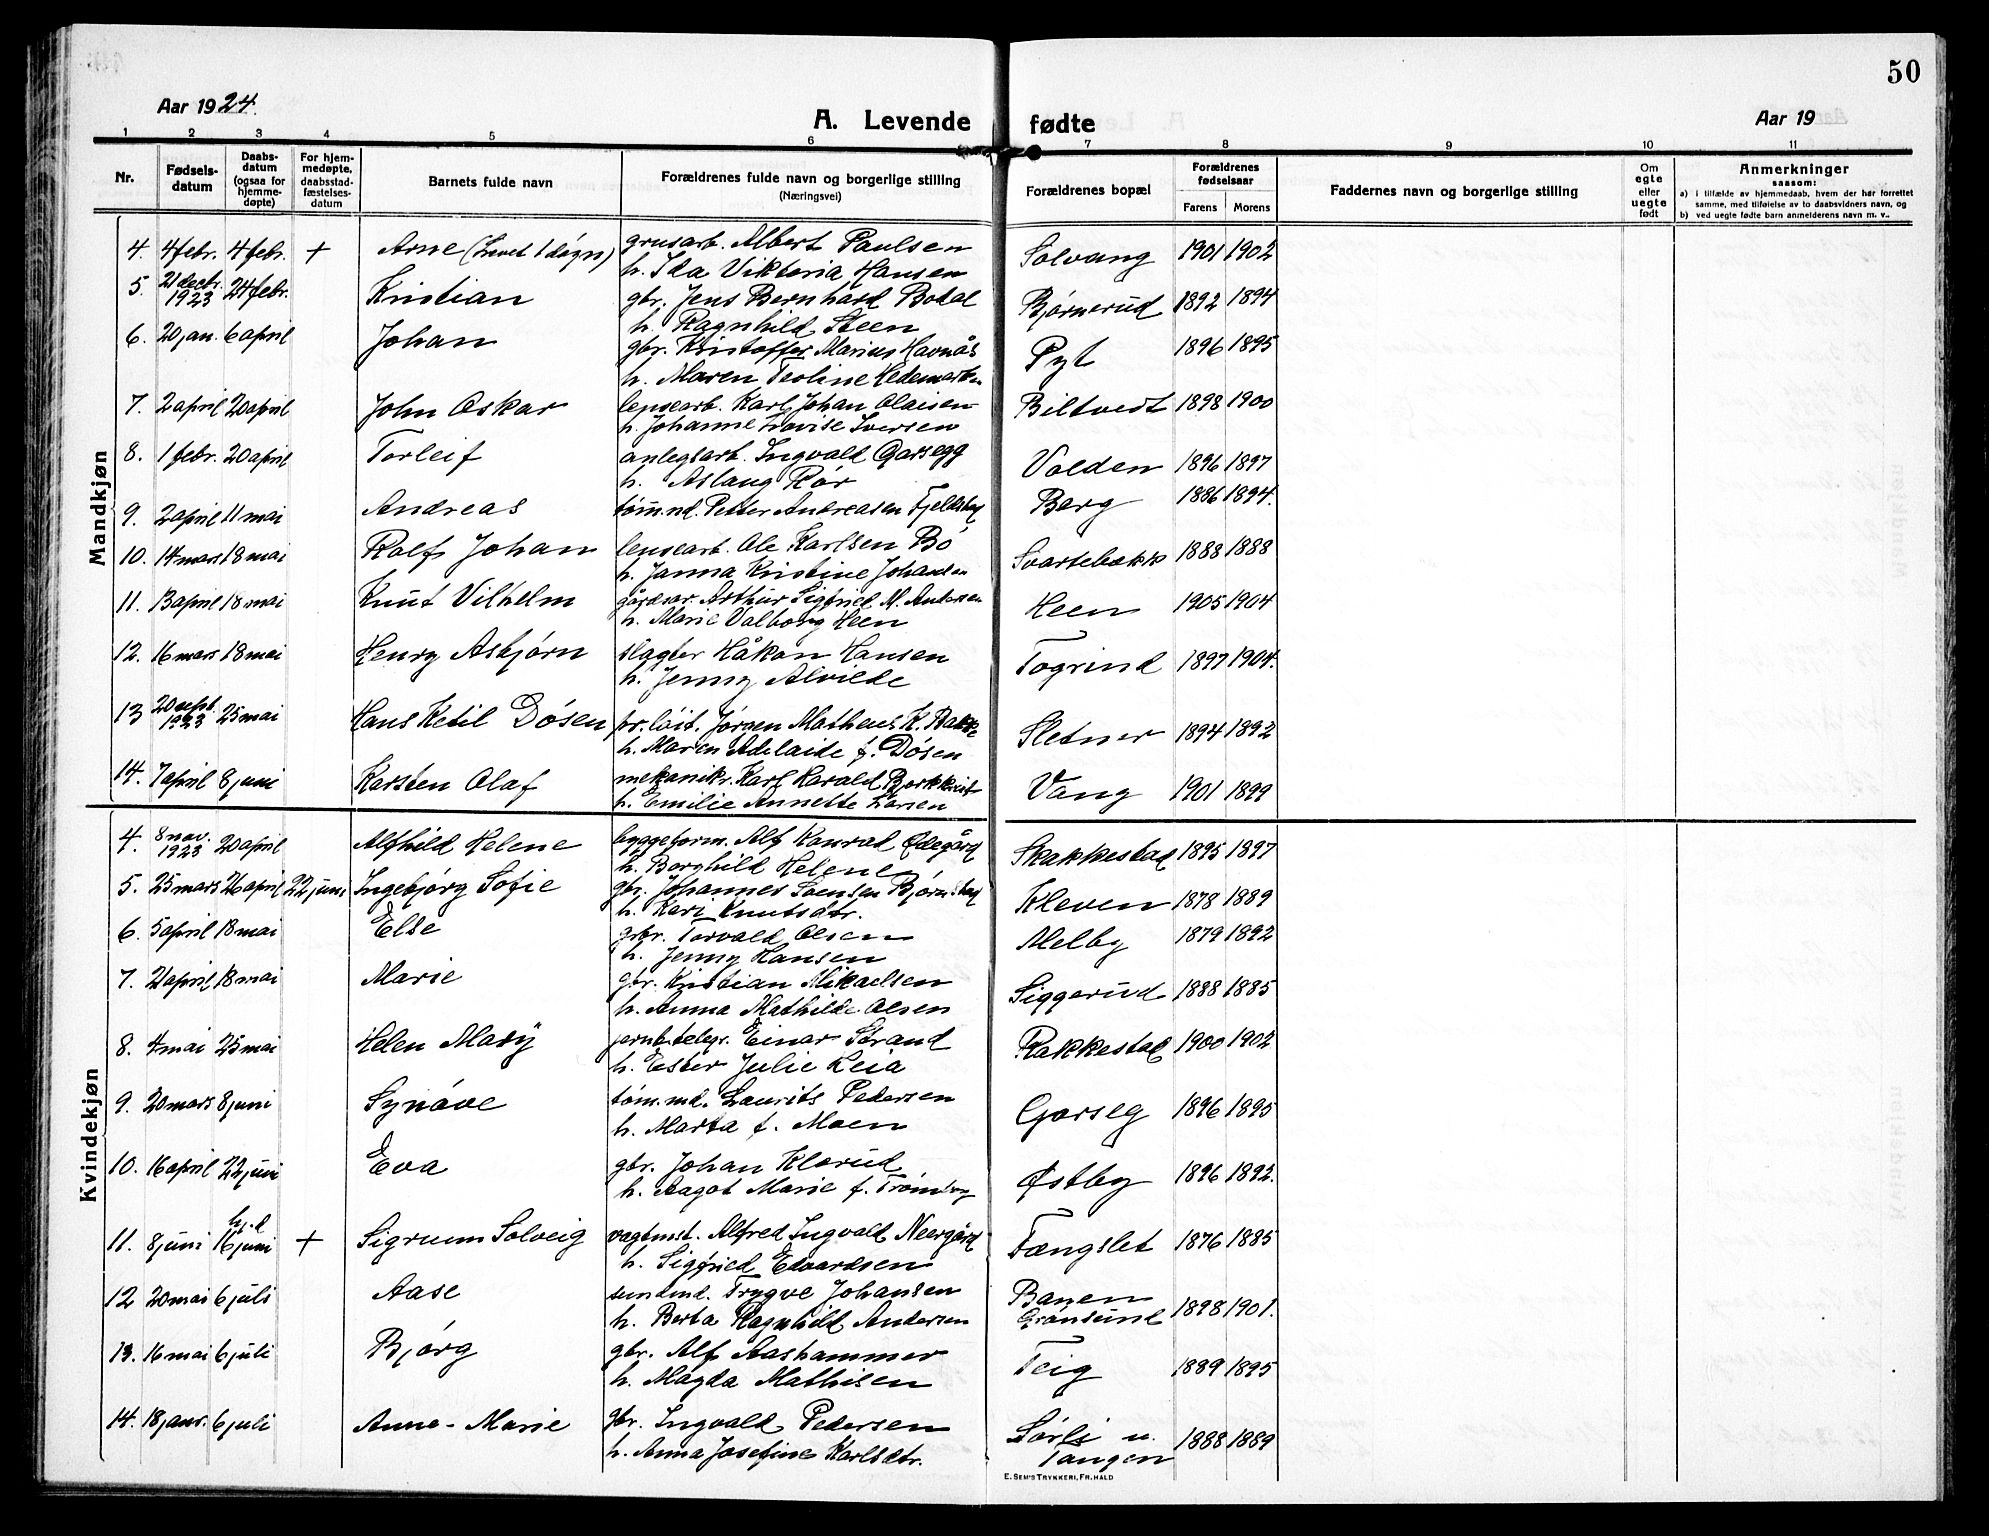 50
Aar 1924.
A. Levende fødte
Aar 19
1 2 3 4 5 6 7 8 9 10 11
Nr.
Fødsels-
datum
Daabs-
datum
(ogsaa for
hjemme-
døpte)
For hjem-
medøpte,
daabsstad-
fæstelses-
datum
Barnets fulde navn
Forældrenes fulde navn og borgerlige stilling
(Næringsvei)
Forældrenes bopæl
Forældrenes
fødselsaar
Farens Morens
Faddernes navn og borgerlige stilling
Om
egte
eller
uegte
født
Anmerkninger
saasom:
a) i tilfælde av hjemmedaab, hvem der har forrettet
samme, med tilføielse av to daabsvidners navn, og
b) ved uegte fødte barn anmelderens navn m. v..
Mandkjøn
4. 4 febr. 4 febr. + Arne (Levet 1 døgn) grusarb. Albert Paulsen Solvang 1901 1902
h. Ida Viktoria Hansen
5. 21 decbr. 1923 24 febr. Kristian gbr. Jens Bernhard Bodal Bjørnerud 1892 1894
h. Ragnhild Steen
6. 20 jan. 6 april Johan gbr. Kristoffer Marius Havnås Pyt 1896 1895
h. Maren Teoline Hedemark
7. 2 april 20 april John Oskar lensearb. Karl Johan Olaisen Biltvedt 1898 1900
h. Johanne Lovise Iversen
8. 1 febr. 20 april Torleif anlegsarb. Ingvald Garsegg Volden 1896 1897
h. Aslaug Rør
9. 2 april 11 mai Andreas tømmd. Petter Andreasen Fjeldstad Berg 1886 1894.
10. 14 mars 18 mai Rolf Johan lensearb. Ole Karlsen Bø Svartebækk 1888 1888
h. Janna Kristine Johansen
11. 13 april 18 mai Knut Vilhelm gårdsar. Arthur Sigfried M. Andersen Heen 1905 1904
h. Marie Valborg Heen
12. 16 mars 18 mai Henry Asbjørn slagter Håkon Hansen Togrind 1897 1904.
h. Jenny Alvilde
13 20 sept. 1923 25 mai Hans Ketil Døsen pr.løit. Jørgen Matheus K. Bakke Sletner 1894 1892
h. Maren Adelaide f. Døsen
14. 7 april 8 juni Karsten Olaf mekanikr. Karl Harald Bjerkkvist Vang 1901 1899
h. Emilie Annette Larsen
Kvindekjøn
4. 8 nov. 1923 20 april Alfhild Helene byggeform. Alf Konrad Ødegård Skakkestad 1895 1897
h. Borghild Helene
5. 25 mars 26 april 22 juni Ingebjørg Sofie gbr. Johannes Svensen Bjørnstad Kleven 1878 1889
h. Kari Knutsdtr.
6. 5 april 18 mai Else gbr. Torvald Olsen Melby 1879 1892
h. Jenny Hansen
7. 21 april 18 mai Marie gbr. Kristian Mikaelsen Siggerud 1888 1885
h. Anna Mathilde Olsen
8. 4 mai 25 mai Helen Mary jernb.telegr. Einar Strand Rakkestad 1900 1902
h. Ester Julie Leia
9. 20 mars 8 juni Synøve tøm.md. Laurits Pedersen Garseg 1896 1895
h. Marta f. Moen
10. 16 april 22 juni Eva gbr. Johan Klarud Østby 1896 1892.
h. Aagot Marie f. Trømborg
11. 8 juni hj.d 16 juni + Sigrunn Solveig vagtmst. Alfred Ingvald Neergård Fængslet 1876 1885
h. Sigfried Edvardsen
12 20 mai 6 juli Aase Trygve Johansen Banen Grønsund 1898 1901.
h. Berta Ragnhild Andersen
13. 16 mai 6 juli Bjørg gbr. Alf Aashammer Teig 1889 1895
h. Magda Mathisen
14. 18 janr. 6 juli Anne-Marie gbr. Ingvald Pedersen Sørli u. Tangen 1888 1889
h. Anna Josefine Karlsdtr.
E. SEM'S TRYKKERI, FR.HALD